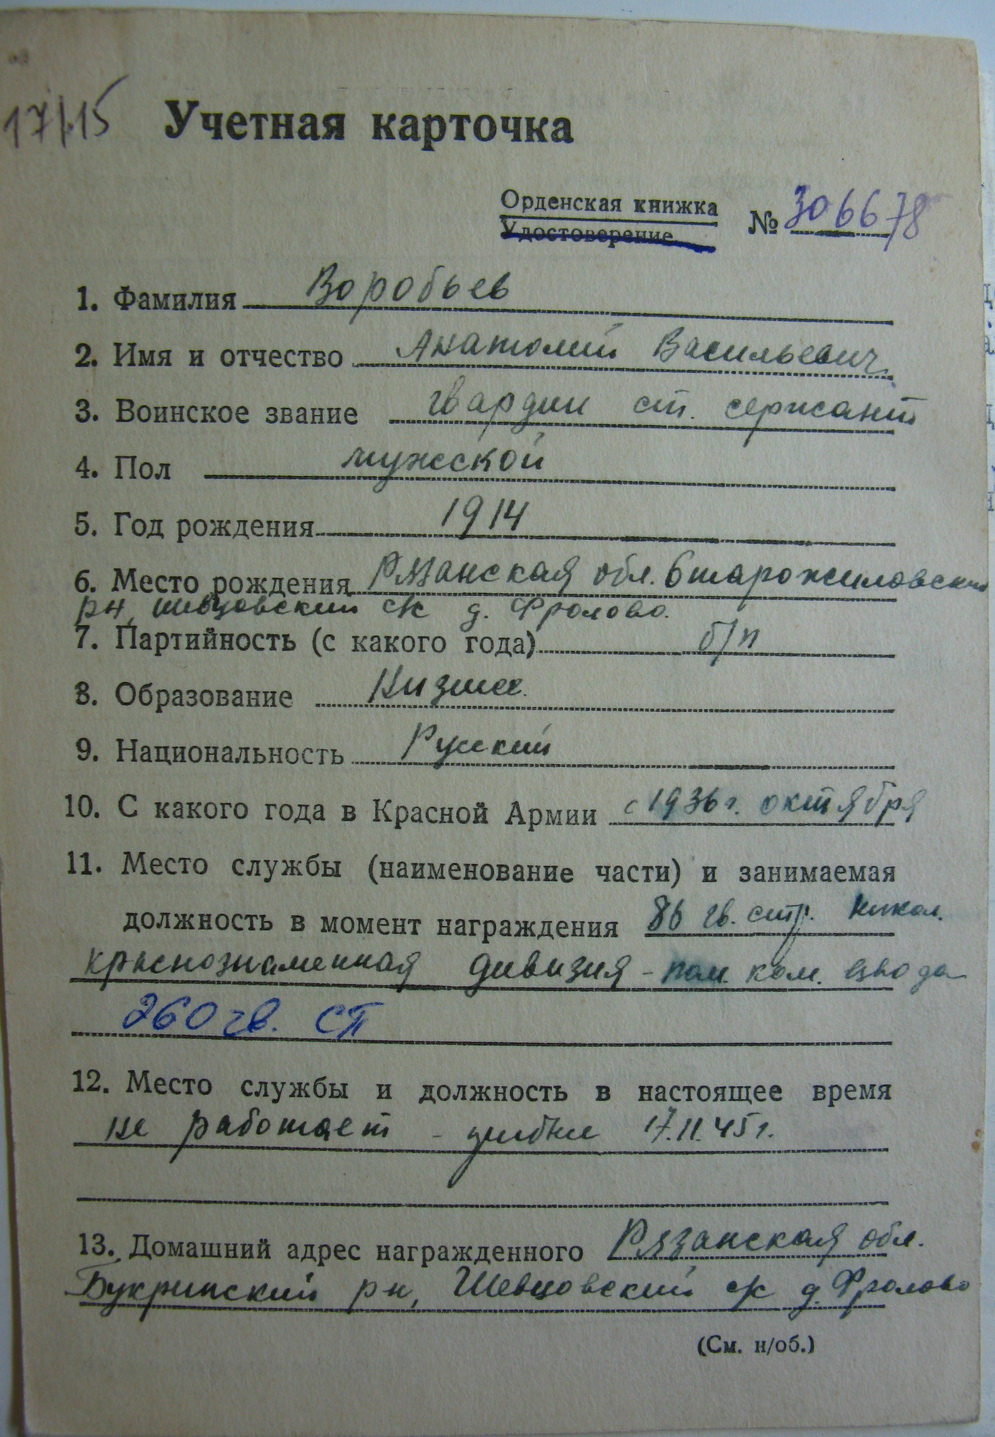 17/15
Учетная карточка
Орденская книжка
Удостоверение
№ 306678
1. Фамилия Воробьев
2. Имя и отчество Анатолий Васильевич
3. Воинское звание гвардии ст. сержант
4. Пол мужской
5. Год рождения 1914
6. Место рождения Рязанская обл. Старожиловский
рн, Шевцовский с/с д. Фролово.
7. Партийность (с какого года) б/п
8. Образование Низшее.
9. Национальность Русский
10. С какого года в Красной Армии с 1936 г. октября
11. Место службы (наименование части) и занимаемая
должность в момент награждения 86 гв. стр. Никол.
краснознаменная дивизия - пом. ком. взвода
260 гв. СП
12. Место службы и должность в настоящее время
не работает - 17.11.45 г.
13. Домашний адрес награжденного Рязанская обл.
Букринский рн, Шевцовский с/с д. Фролово
(См. н/об.)